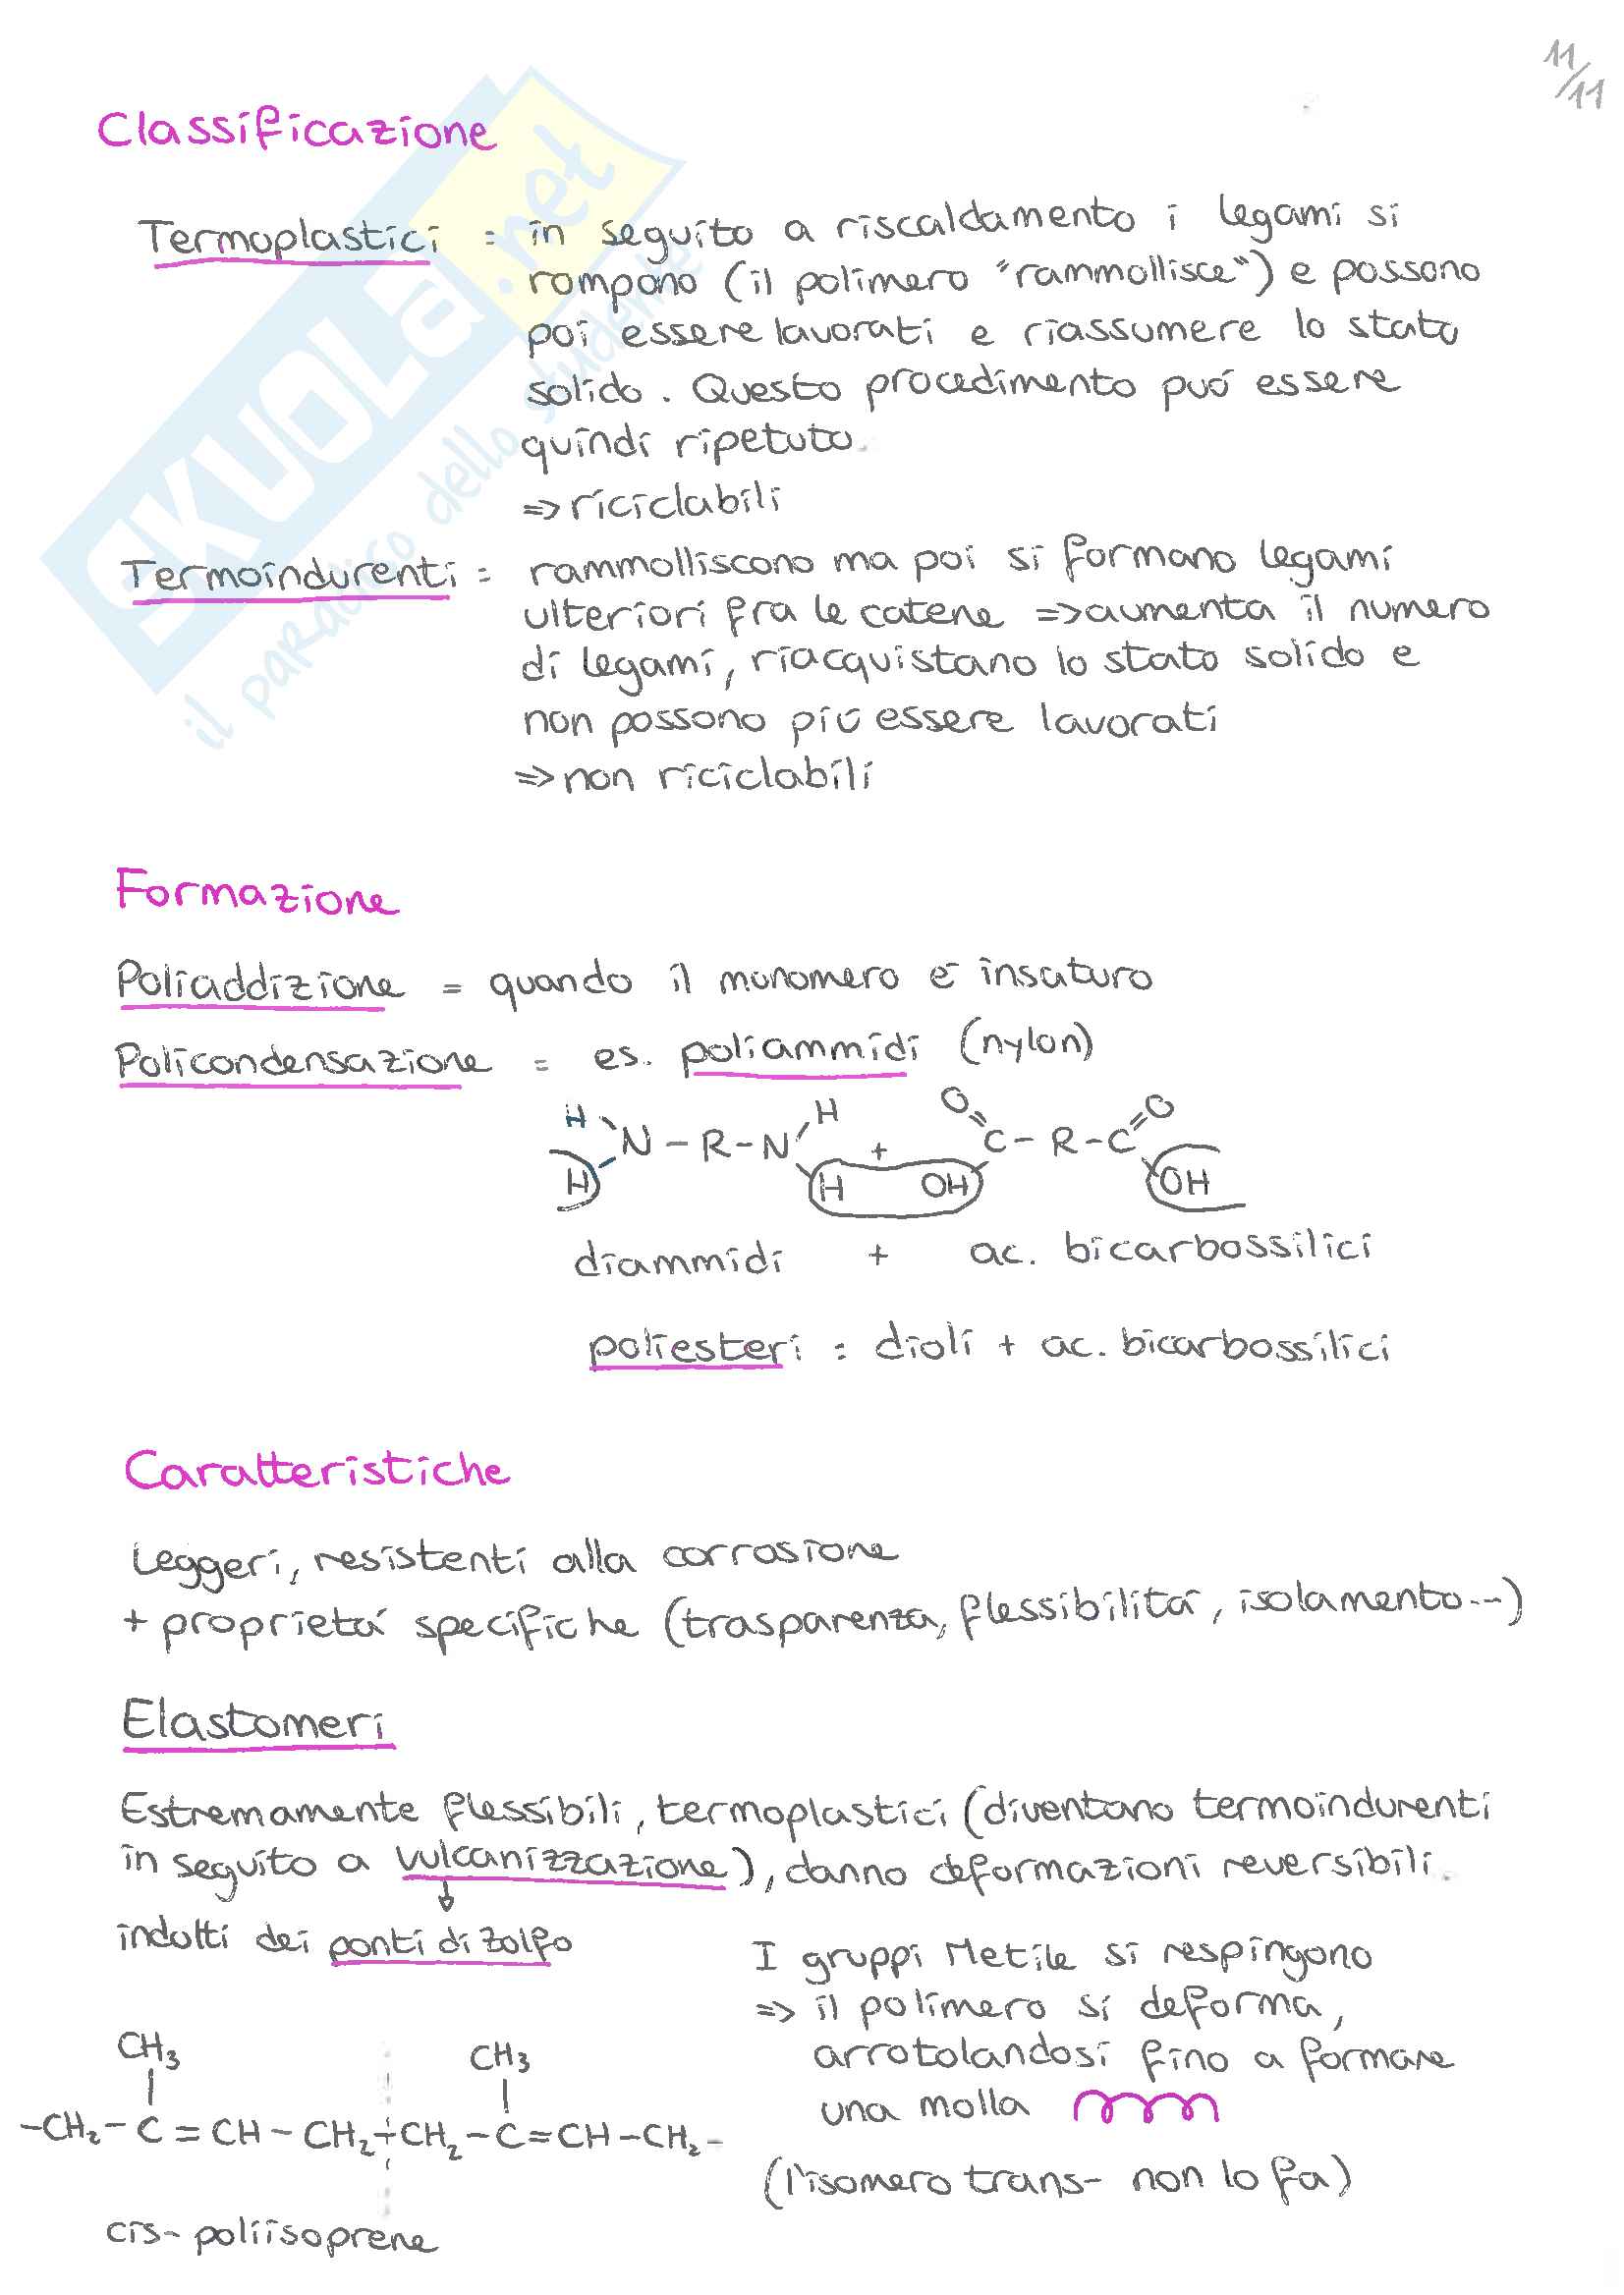 11/11
Classificazione
Termoplastici = in seguito a riscaldamento i legami si
rompono (il polimero "rammollisce") e possono
poi essere lavorati e riassumere lo stato
solido. Questo procedimento puó essere
quindi ripetuto.
=> riciclabili
Termoindurenti = rammolliscono ma poi si formano legami
ulteriori fra le catene => aumenta il numero
di legami, riacquistano lo stato solido e
non possono piú essere lavorati
=> non riciclabili
Formazione
Poliaddizione = quando il monomero é insaturo
Policondensazione = es. poliammidi (nylon)
H H O O
N - R - N + C - R - C
H H OH OH
diammidi + ac. bicarbossilici
poliesteri = dioli + ac. bicarbossilici
Caratteristiche
Leggeri, resistenti alla corrosione
+ proprietá specifiche (trasparenza, flessibilitá, isolamento...)
Elastomeri
Estremamente flessibili, termoplastici (diventano termoindurenti
in seguito a vulcanizzazione), danno deformazioni reversibili.
indotti dei ponti di zolfo
I gruppi Metile si respingono
=> il polimero si deforma,
arrotolandosi fino a formare
una molla
(l'isomero trans- non lo fa)
CH3 CH3
-CH2-C=CH-CH2-CH2-C=CH-CH2-
cis-poliisoprene
SKUOLA.net
il paradiso dello studente